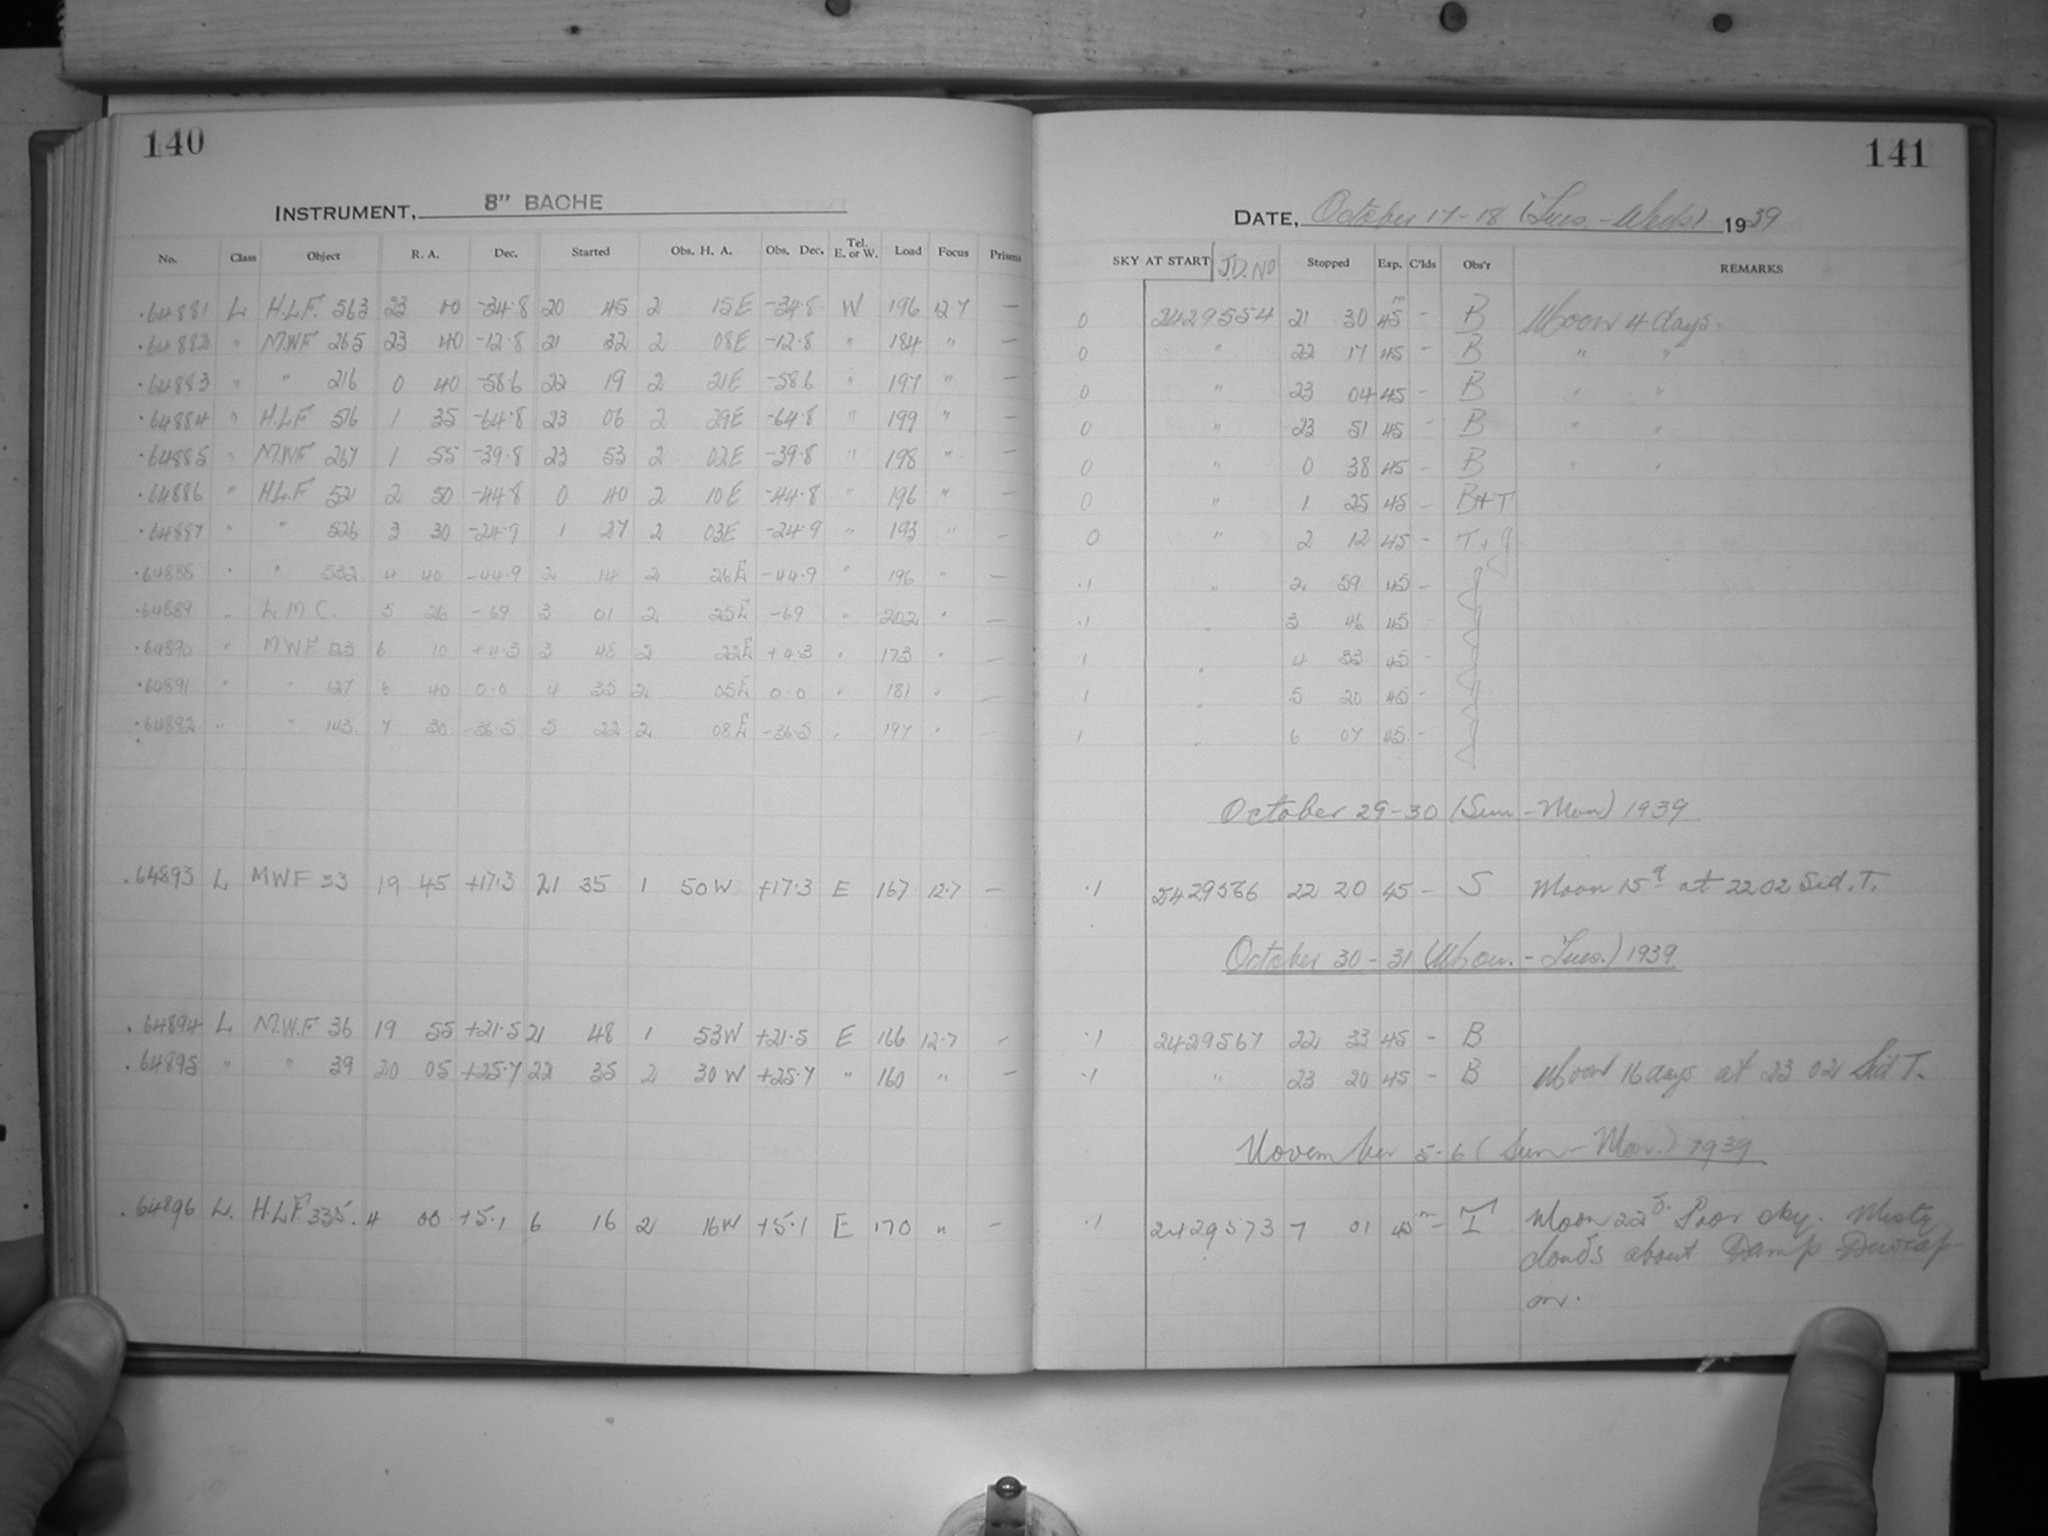 140
INSTRUMENT, 8" BACHE
No. Class Object R. A. Dec. Started Obs. H. A. Obs. Dec. Tel. E. or W. Load Focus Prisms
.64881 L H.L.F. 563 23 00 -34.8 20 45 2 15E -34.8 W 196 12.7 —
.64882 " M.WF 265 23 40 -12.8 21 32 2 08E -12.8 " 184 " —
.64883 " " 216 0 40 -58.6 22 19 2 21E -58.6 " 197 " —
.64884 " H.L.F 516 1 35 -64.8 23 06 2 29E -64.8 " 199 " —
.64885 " M.WF 267 1 55 -39.8 23 53 2 02E -39.8 " 198 " —
.64886 " H.L.F 521 2 50 -44.8 0 40 2 10E -44.8 " 196 " —
.64887 " " 526 3 30 -24.9 1 27 2 03E -24.9 " 193 " —
.64888 " " 532 4 40 -44.9 2 14 2 26E -44.9 " 196 " —
.64889 " L.M.C. 5 26 -69 3 01 2 25E -69 " 202 " —
.64890 " MWF 6 10 +4.3 3 48 2 22E +4.3 " 173 " —
.64891 " " 127 6 40 0.0 4 35 2 05E 0.0 " 181 " —
.64892 " " 143 7 30 -36.5 5 22 2 08E -36.5 " 197 " —
.64893 L MWF 33 19 45 +17.3 21 35 1 50W +17.3 E 167 12.7 —
.64894 L M.W.F 36 19 55 +21.5 21 48 1 53W +21.5 E 166 12.7 —
.64895 " " 39 20 05 +25.7 22 35 2 30W +25.7 " 160 " —
.64896 L. H.L.F. 335. 4 00 +5.1 6 16 2 16W +5.1 E 170 " —
141
DATE, October 17-18 (Tues.-Weds) 1939
SKY AT START J.D. NO Stopped Exp. C'lds Obs'r REMARKS
0 2429554 21 30 45m - B Moon 4 days.
0 " 22 17 45 - B " "
0 " 23 04 45 - B " "
0 " 23 51 45 - B " "
0 " 0 38 45 - B " "
0 " 1 25 45 - B+T
0 " 2 12 45 - T+J
.1 " 2 59 45 - J
.1 " 3 46 45 - J
1 " 4 33 45 - J
1 " 5 20 45 - J
1 " 6 07 45 - J
October 29-30 (Sun-Mon) 1939
.1 2429566 22 20 45 - S Moon 15d at 22 02 Sid. T.
October 30-31 (Mon.-Tues.) 1939
.1 2429567 22 33 45 - B
.1 " 23 20 45 - B Moon 16 days at 23 02 Sid T.
November 5-6 (Sun-Mon.) 1939
.1 2429573 7 01 45m - T Moon 22d. Poor sky. Misty
clouds about Damp Dewcap
on.